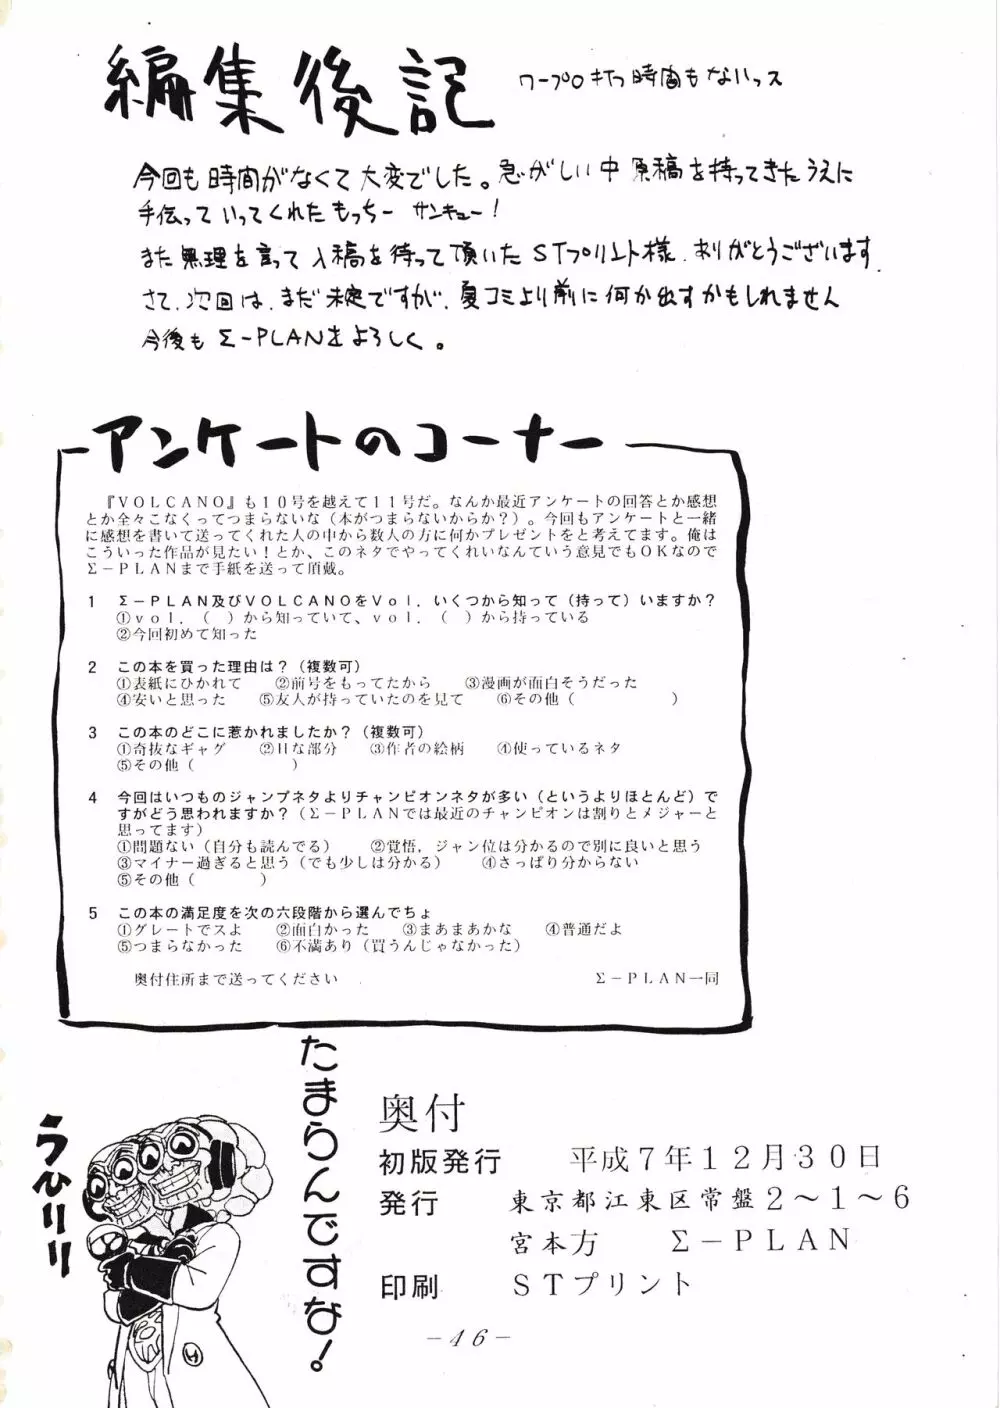 編集後記
ワープロ打つ時間もないっス
今回も時間がなくて大変でした。急がしい中原稿を持ってきたうえに
手伝っていってくれたもっちー サンキュー！
また無理を言って入稿を待って頂いたSTプリント様、ありがとうございます。
さて、次回は、まだ未定ですが、夏コミより前に何か出すかもしれません
今後もΣ-PLANをよろしく。
アンケートのコーナー
『ＶＯＬＣＡＮＯ』も１０号を越えて１１号だ。なんか最近アンケートの回答とか感想
とか全々こなくってつまらないな（本がつまらないからか？）。今回もアンケートと一緒
に感想を書いて送ってくれた人の中から数人の方に何かプレゼントをと考えてます。俺は
こういった作品が見たい！とか、このネタでやってくれいなんていう意見でもＯＫなので
Σ－ＰＬＡＮまで手紙を送って頂戴。
１　Σ－ＰＬＡＮ及びＶＯＬＣＡＮＯをＶｏｌ．いくつから知って（持って）いますか？
①ｖｏｌ．（　）から知っていて、ｖｏｌ．（　）から持っている
②今回初めて知った
２　この本を買った理由は？（複数可）
①表紙にひかれて　②前号をもってたから　③漫画が面白そうだった
④安いと思った　⑤友人が持っていたのを見て　⑥その他（　　　　　　）
３　この本のどこに惹かれましたか？（複数可）
①奇抜なギャグ　②Ｈな部分　③作者の絵柄　④使っているネタ
⑤その他（　　　　　　）
４　今回はいつものジャンプネタよりチャンピオンネタが多い（というよりほとんど）で
すがどう思われますか？（Σ－ＰＬＡＮでは最近のチャンピオンは割りとメジャーと
思ってます）
①問題ない（自分も読んでる）　②覚悟，ジャン位は分かるので別に良いと思う
③マイナー過ぎると思う（でも少しは分かる）　④さっぱり分からない
⑤その他（　　　　）
５　この本の満足度を次の六段階から選んでちょ
①グレートでスよ　②面白かった　③まあまあかな　④普通だよ
⑤つまらなかった　⑥不満あり（買うんじゃなかった）
奥付住所まで送ってください　　Σ－ＰＬＡＮ一同
たまらんですな！
うひリリ
奥付
初版発行　平成７年１２月３０日
発行　東京都江東区常盤２～１～６
宮本方　Σ－ＰＬＡＮ
印刷　ＳＴプリント
-46-